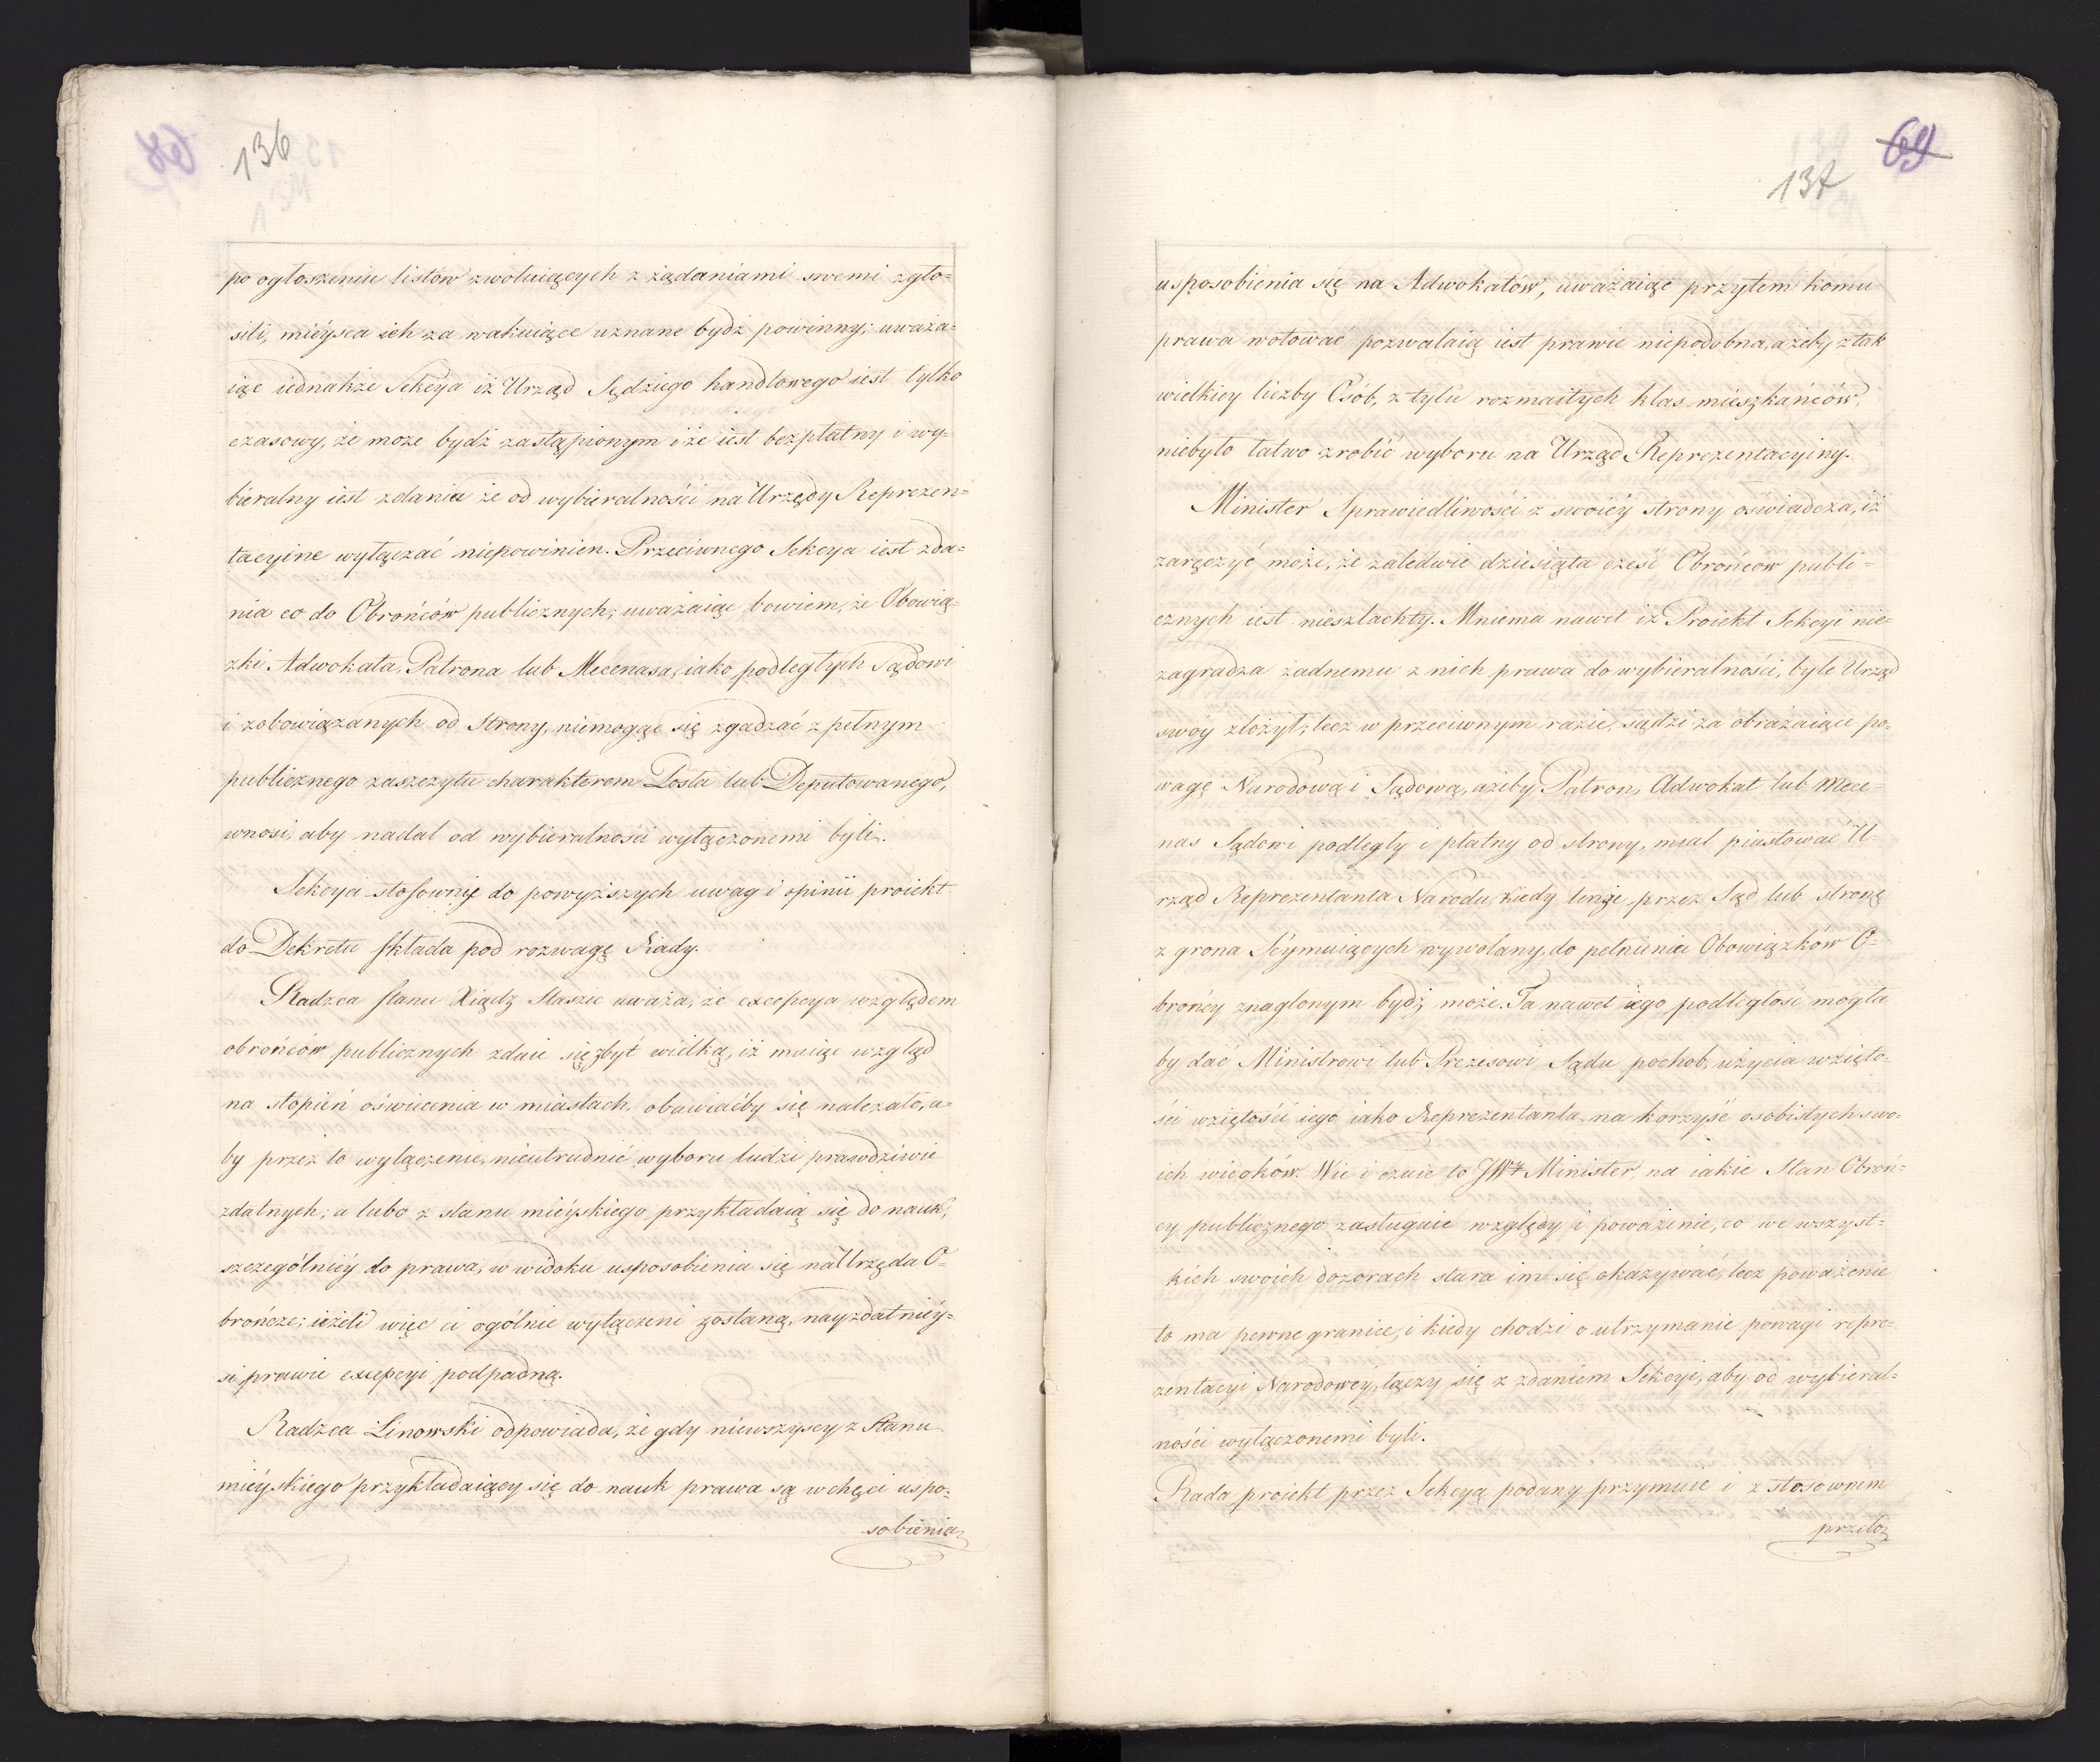 136
po ogłoszeniu listów zwołuiących z żądaniami swemi zgło=
sili, mieysca ich za wakuiące uznane bydź powinny; uważa=
iąc iednakże Sekcya iż Urząd Sędziego handlowego iest tylko
czasowy, że może bydź zastąpionym i że iest bezpłatny i wy=
bieralny iest zdania że od wybieralności na Urzędy Reprezen=
tacyine wyłączać niepowinien. Przeciwnego Sekcya iest zda=
nia co do Obrońców publicznych; uważaiąc bowiem, że Obowią=
zki Adwokata, Patrona lub Mecenasa, iako podległych Sądowi
i zobowiązanych od Strony, niemogąc się zgadzać z pełnym
publicznego zaszczytu charakterem Posła lub Deputowanego,
wnosi, aby nadal od wybieralności wyłączonemi byli.
Sekcya stosownie do powyższych uwag i opinii proiekt
do Dekretu składa pod rozwagę Rady.
Radzca stanu Xiądz Staszic uważa, że excepcya względem
obrońców publicznych zdaie się zbyt wielką, iż maiąc wzgląd
na stopień oświecenia w miastach, obawiaćby się należało, a=
by przez to wyłączenie, nieutrudnić wyboru ludzi prawdziwie
zdatnych; a lubo z stanu mieyskiego przykładaią się do nauk,
szczególniéy do prawa, w widoku usposobienia się na Urzęda O=
brończe; ieżeli więc ci ogólnie wyłączeni zostaną, nayzdatniéy=
si prawie excepcyi podpadną.
Radzca Linowski odpowiada, że gdy niewszyscy z Stanu
mieyskiego przykładaiący się do nauk prawa są w chęci uspo=
sobienia
69
137
usposobienia się na Adwokatów, uważaiąc przytem komu
prawa wotować pozwalaią iest prawie niepodobna, ażeby z tak
wielkiey liczby Osób, z tylu rozmaitych klas mieszkańców,
niebyło łatwo zrobić wyboru na Urząd Reprezentacyiny.
Minister Sprawiedliwości z swoiéy strony oświadcza, iż
zaręczyć może, że zaledwie dziesiąta część Obrońców publi=
cznych iest nieszlachty. Mniema nawet iż Proiekt Sekcyi nie=
zagradza żadnemu z nich prawa do wybieralności, byle Urząd
swóy złożył; lecz w przeciwnym razie, sądzi za obrażaiące po=
wagę Narodową i Sądową, ażeby Patron, Adwokat lub Mece=
nas Sądowi podległy i płatny od strony, miał piastować U=
rząd Reprezentanta Narodu, kiedy tenże przez Sąd lub stronę
z grona Seymuiących wywołany, do pełnienia Obowiązków O=
brońcy znaglonym bydź może. Ta nawet iego podległość mogła
by dać Ministrowi lub Prezesowi Sądu pochob, użycia wzięto=
ści wziętości iego iako Reprezentanta, na korzyść osobistych swo=
ich widoków. Wie i czuie to JW Minister, na iakie Stan Obroń=
cy publicznego zasługuie względy i poważenie, co we wszyst=
kich swoich dozorach stara im się okazywać, lecz poważenie
to ma pewne granice, i kiedy chodzi o utrzymanie powagi repre=
zentacyi Narodowéy, łączy się z zdaniem Sekcyi, aby od wybieral=
ności wyłączonemi byli.
Rada proiekt przez Sekcyą podany przymuie i z stosownem
przeło